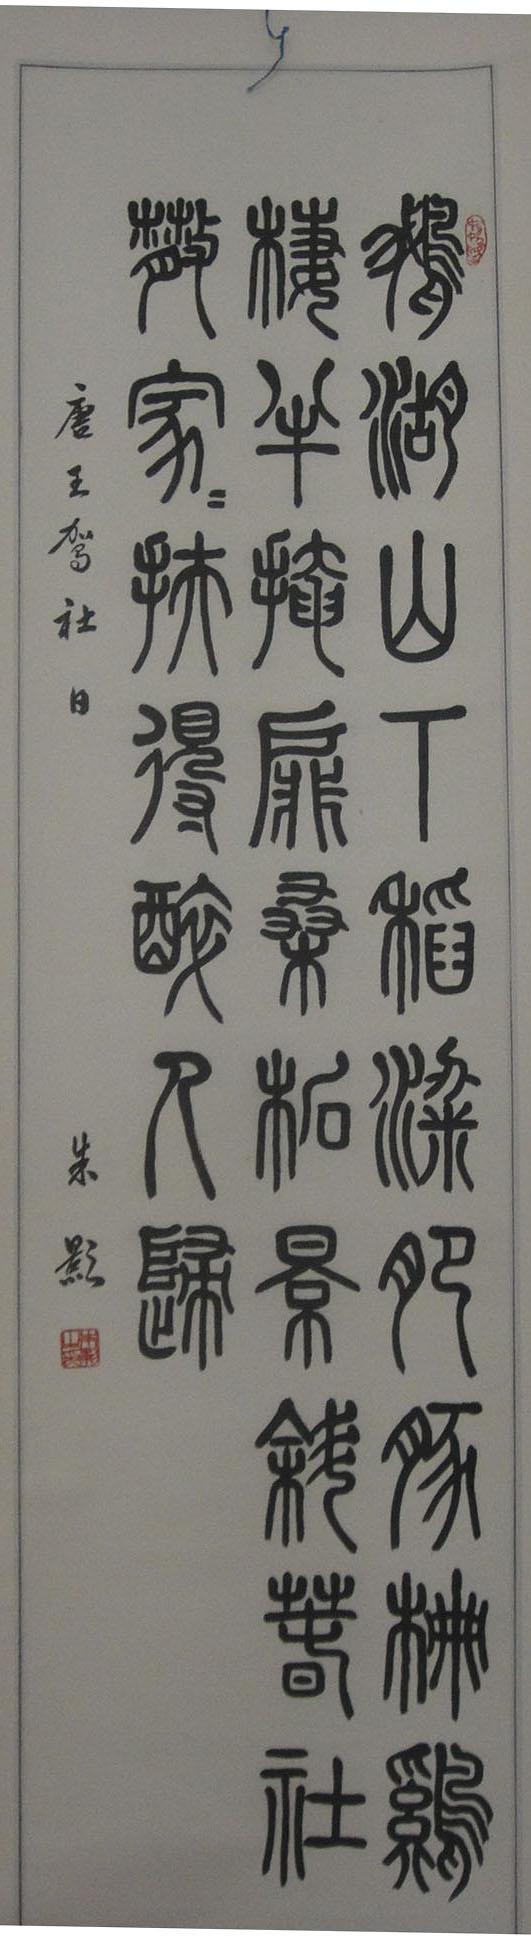 鵝湖山下稻粱肥豚柵鷄
棲半掩扉桑柘景斜春社
散家〻扶得醉人歸
唐王駕社日
朱影